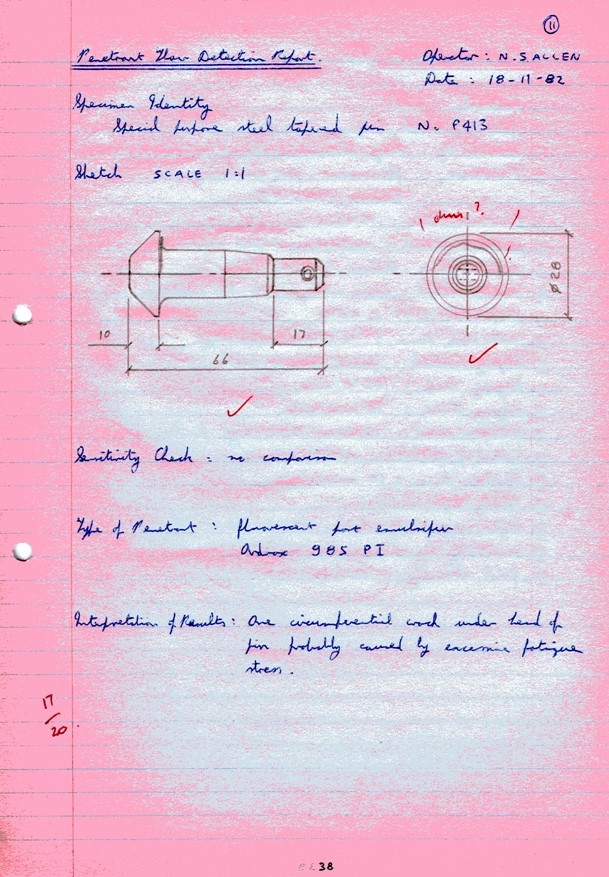 11
Penetrant Flaw Detection Report.
Operator : N.S. ALLEN
Date : 18-11-82
Specimen Identity
Special purpose steel tapered pin No P413
Sketch SCALE 1:1
dims ?
10
17
66
ø 28
Sensitivity Check : no comparison
Type of Penetrant : fluorescent post emulsifier
Ardrox 985 PI
Interpretation of Results : One circumferential crack under head of
pin probably caused by excessive fatigue
stress.
17
20
38